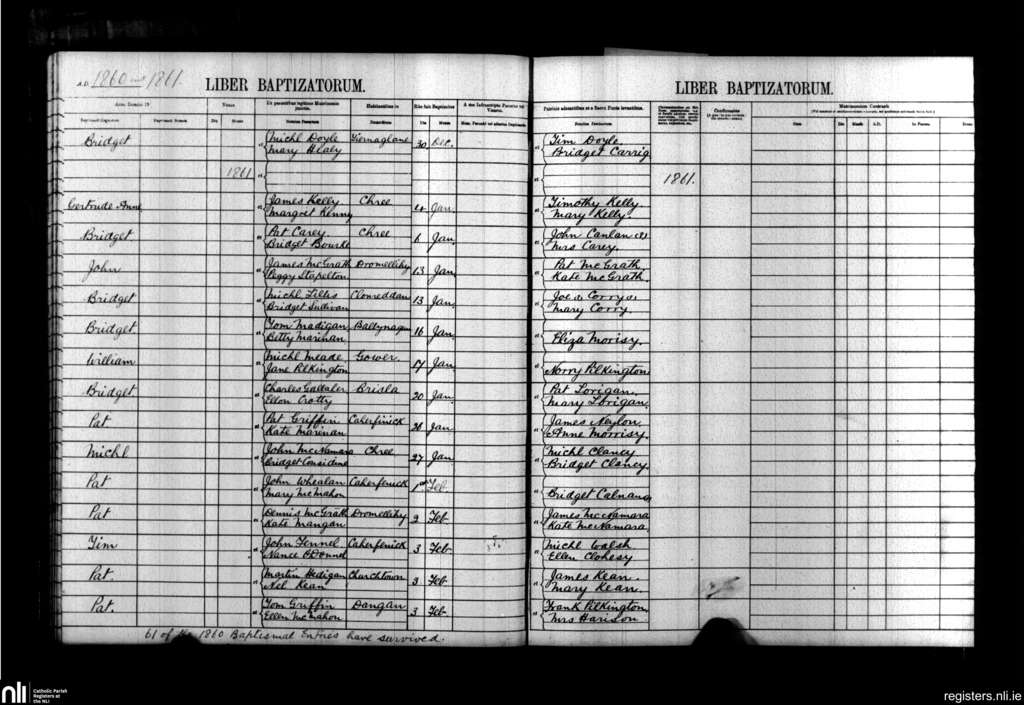 A.D. 1860 and 1861.
LIBER BAPTIZATORUM.
LIBER BAPTIZATORUM.
Anno Domini 19
Natus
Habitantibus in
Die fuit Baptizatus
Confirmatus
Matrimonium Contraxit
Die
Mense
Die
Mense
Die
Mense
A.D.
Bridget Michl Doyle Tiernaglane 30 Dec. Tim Doyle
Mary Healy Bridget Carrig
1861 1861.
Gertrude Anne James Kelly Chree 4 Jan. Timothy Kelly
Margret Kenny Mary Kelly
Bridget Pat Carey Chree 6 Jan John Canlan
Bridget Bourke Mrs Carey.
John James McGrath Dromellihy 13 Jan Pat McGrath
Peggy Stapelton Kate McGrath.
Bridget Michl Lillis Clonreddan 13 Jan. Joe Corry
Bridget Sullivan Mary Corry.
Bridget Tom Madigan Ballynagun 16 Jan.
Betty Marinan Eliza Morisy.
William Michl Meade Gower. 17 Jan
Jane Pilkington Norry Pilkington
Bridget Charles Galtaler Brisla 20 Jan. Pat Lorigan.
Ellen Crotty Mary Lorigan.
Pat. Pat Griffin Caherfinick 26 Jan. James Neylon.
Kate Marinan Anne Morrisy.
Michl John McNamara Chree 27 Jan Michl Clancy
Bridget Considine Bridget Clancy
Pat John Whealan Caherfenick 1st Feb.
Mary McMahon Bridget Calnan
Pat Dennis McGrath Dromellihy 2 Feb James McNamara
Kate Mangan Kate McNamara.
Tim John Fennel Caherfenick 3 Feb Michl Walsh
Nance O'Donnel Ellen Clohesy
Pat. Martin Hedigan Churchtown 3 Feb James Kean.
Nel. Kean Mary Kean.
Pat. Tom Griffin Dangan 3 Feb. Frank Pilkington
Ellen McMahon Mrs Harison
61 of the 1860 Baptismal Entries have survived.
nli
Catholic Parish
Registers at
the NLI
registers.nli.ie